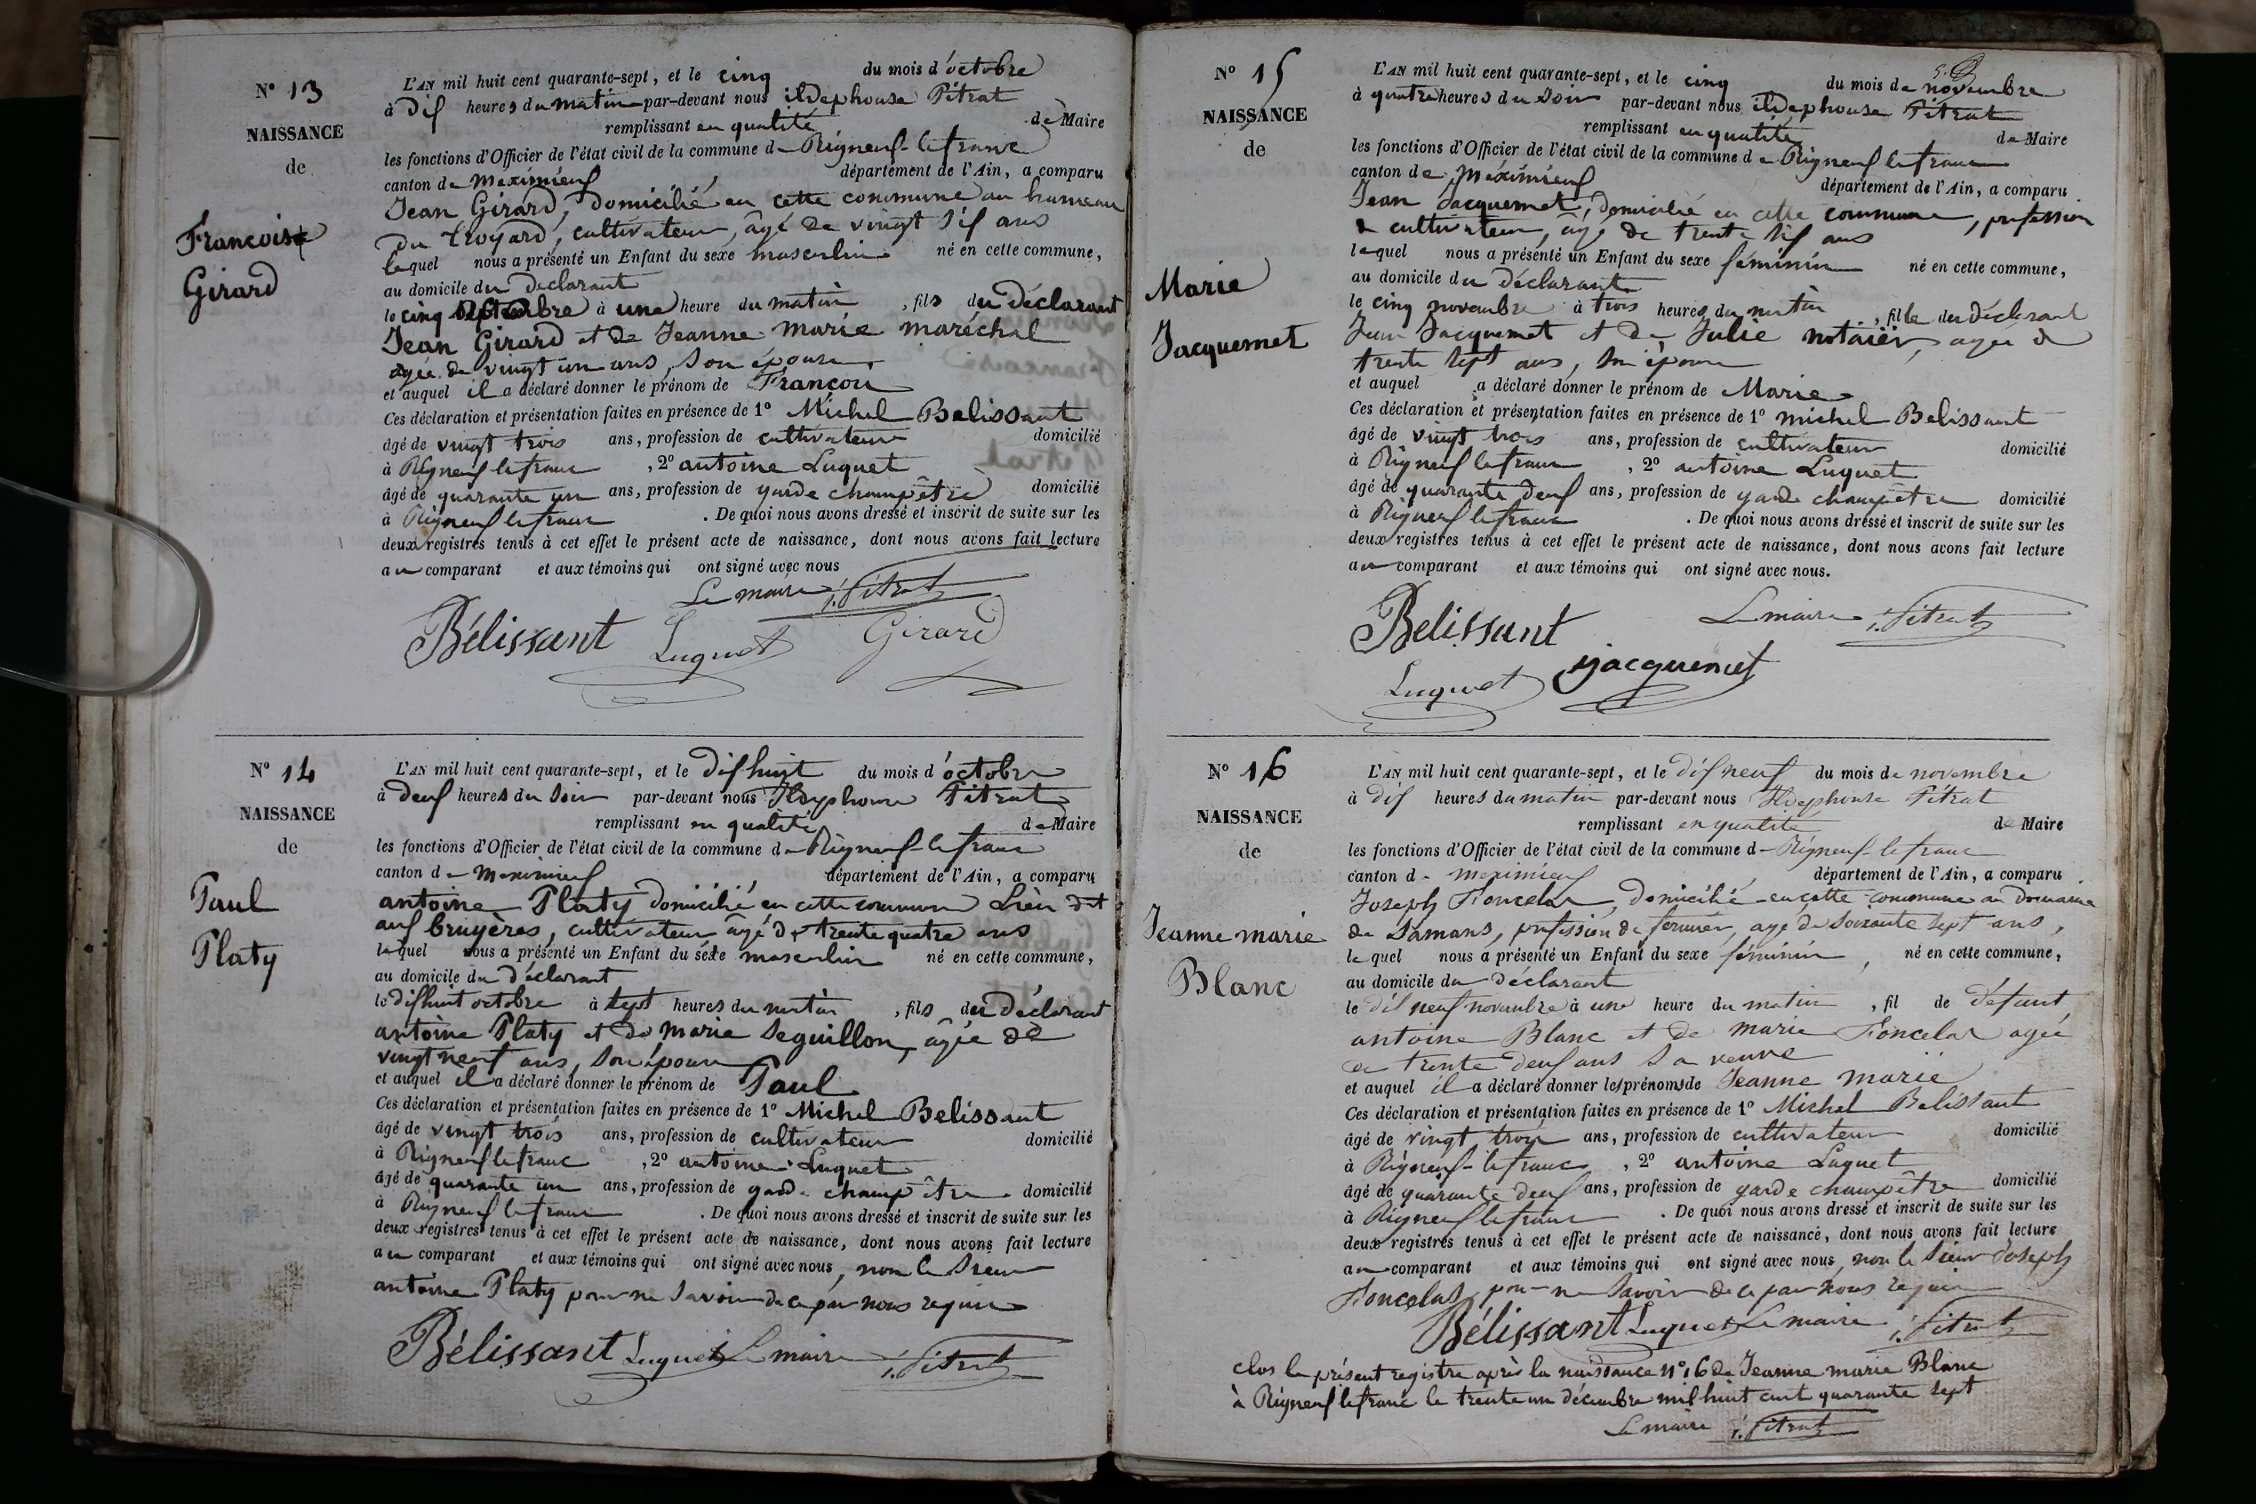 N° 13
NAISSANCE
de
François
Girard
L'AN mil huit cent quarante-sept, et le cinq du mois d'octobre
à dix heures du matin par-devant nous ildephonse Pitrat
remplissant en qualité de Maire
les fonctions d'Officier de l'état civil de la commune de Rigneux-le franc
canton de Meximieux département de l'Ain, a comparu
Jean Girard, domicilié en cette commune au hameau
du Troyard, cultivateur, âgé de vingt six ans
lequel nous a présenté un Enfant du sexe masculin né en cette commune,
au domicile du déclarant
le cinq octobre à une heure du matin, fils du déclarant
Jean Girard et de Jeanne Marie maréchal
agée de vingt un ans, son épouse
et auquel il a déclaré donner le prénom de François
Ces déclaration et présentation faites en présence de 1° Michel Belissant
âgé de vingt trois ans, profession de cultivateur domicilié
à Rigneux le franc, 2° antoine Luquet
âgé de quarante un ans, profession de garde champêtre domicilié
à Rigneux le franc. De quoi nous avons dressé et inscrit de suite sur les
deux registres tenus à cet effet le présent acte de naissance, dont nous avons fait lecture
au comparant et aux témoins qui ont signé avec nous
Le maire i. Pitrat
Bélissant Luquet Girard
N° 14
NAISSANCE
de
Paul
Platy
L'AN mil huit cent quarante-sept, et le dix huit du mois d'octobre
à deux heures du soir par-devant nous Ildephonse Pitrat
remplissant en qualité de Maire
les fonctions d'Officier de l'état civil de la commune de Rigneux-le franc
canton de Meximieux département de l'Ain, a comparu
antoine Platy domicilié en cette commune Lieu dit
aux bruyères, cultivateur âgé de trente quatre ans
lequel nous a présenté un Enfant du sexe masculin né en cette commune,
au domicile du déclarant
le dix huit octobre à sept heures du matin, fils du déclarant
antoine Platy et de marie Seguillon, âgée de
vingt neuf ans, son épouse
et auquel il a déclaré donner le prénom de Paul
Ces déclaration et présentation faites en présence de 1° Michel Belissant
âgé de vingt trois ans, profession de cultivateur domicilié
à Rigneux le franc, 2° antoine Luquet
âgé de quarante un ans, profession de garde champêtre domicilié
à Rigneux le franc. De quoi nous avons dressé et inscrit de suite sur les
deux registres tenus à cet effet le présent acte de naissance, dont nous avons fait lecture
au comparant et aux témoins qui ont signé avec nous, non le Sieur
antoine Platy pour ne savoir de ce par nous requis
Bélissant Luquet Le maire i. Pitrat
N° 15
NAISSANCE
de
Marie
Jacquemet
L'AN mil huit cent quarante-sept, et le cinq du mois de novembre
à quatre heures du soir par-devant nous ildephonse Pitrat
remplissant en qualité de Maire
les fonctions d'Officier de l'état civil de la commune de Rigneux le franc
canton de Méximieux département de l'Ain, a comparu
Jean Jacquemet, domicilié en cette commune, profession
de cultivateur, âgé de trente six ans
lequel nous a présenté un Enfant du sexe féminin né en cette commune,
au domicile du déclarant
le cinq novembre à trois heures du matin, fille du déclarant
Jean Jacquemet et de Julie notaier, agée de
trente sept ans, son épouse
et auquel a déclaré donner le prénom de Marie
Ces déclaration et présentation faites en présence de 1° michel Belissant
âgé de vingt trois ans, profession de cultivateur domicilié
à Rigneux le franc, 2° antoine Luquet
âgé de quarante deux ans, profession de garde champêtre domicilié
à Rigneux le franc. De quoi nous avons dressé et inscrit de suite sur les
deux registres tenus à cet effet le présent acte de naissance, dont nous avons fait lecture
au comparant et aux témoins qui ont signé avec nous.
Belissant Le maire i. Pitrat
Luquet jacquemet
N° 16
NAISSANCE
de
Jeanne marie
Blanc
L'AN mil huit cent quarante-sept, et le dix neuf du mois de novembre
à dix heures du matin par-devant nous Ildephonse Pitrat
remplissant en qualité de Maire
les fonctions d'Officier de l'état civil de la commune de Rigneux-le franc
canton de meximieux département de l'Ain, a comparu
Joseph Foncelas, domicilié en cette commune au domaine
de Samans, profession de fermier, agé de soixante sept ans,
lequel nous a présenté un Enfant du sexe féminin, né en cette commune,
au domicile du déclarant
le dix neuf novembre à une heure du matin, fil de défunt
antoine Blanc et de marie Foncelas agée
de trente deux ans sa veuve
et auquel il a déclaré donner les prénoms de Jeanne marie
Ces déclaration et présentation faites en présence de 1° Michel Belissant
âgé de vingt trois ans, profession de cultivateur domicilié
à Rigneux-le franc, 2° antoine Luquet
âgé de quarante deux ans, profession de garde champêtre domicilié
à Rigneux le franc. De quoi nous avons dressé et inscrit de suite sur les
deux registres tenus à cet effet le présent acte de naissance, dont nous avons fait lecture
au comparant et aux témoins qui ont signé avec nous, non le sieur Joseph
Foncelas, pour ne savoir de ce par nous requis
Bélissant Luquet Le maire i. Pitrat
clos le présent registre après la naissance n° 16 de Jeanne marie Blanc
à Rigneux le franc le trente un décembre mil huit cent quarante sept
Le maire i. Pitrat